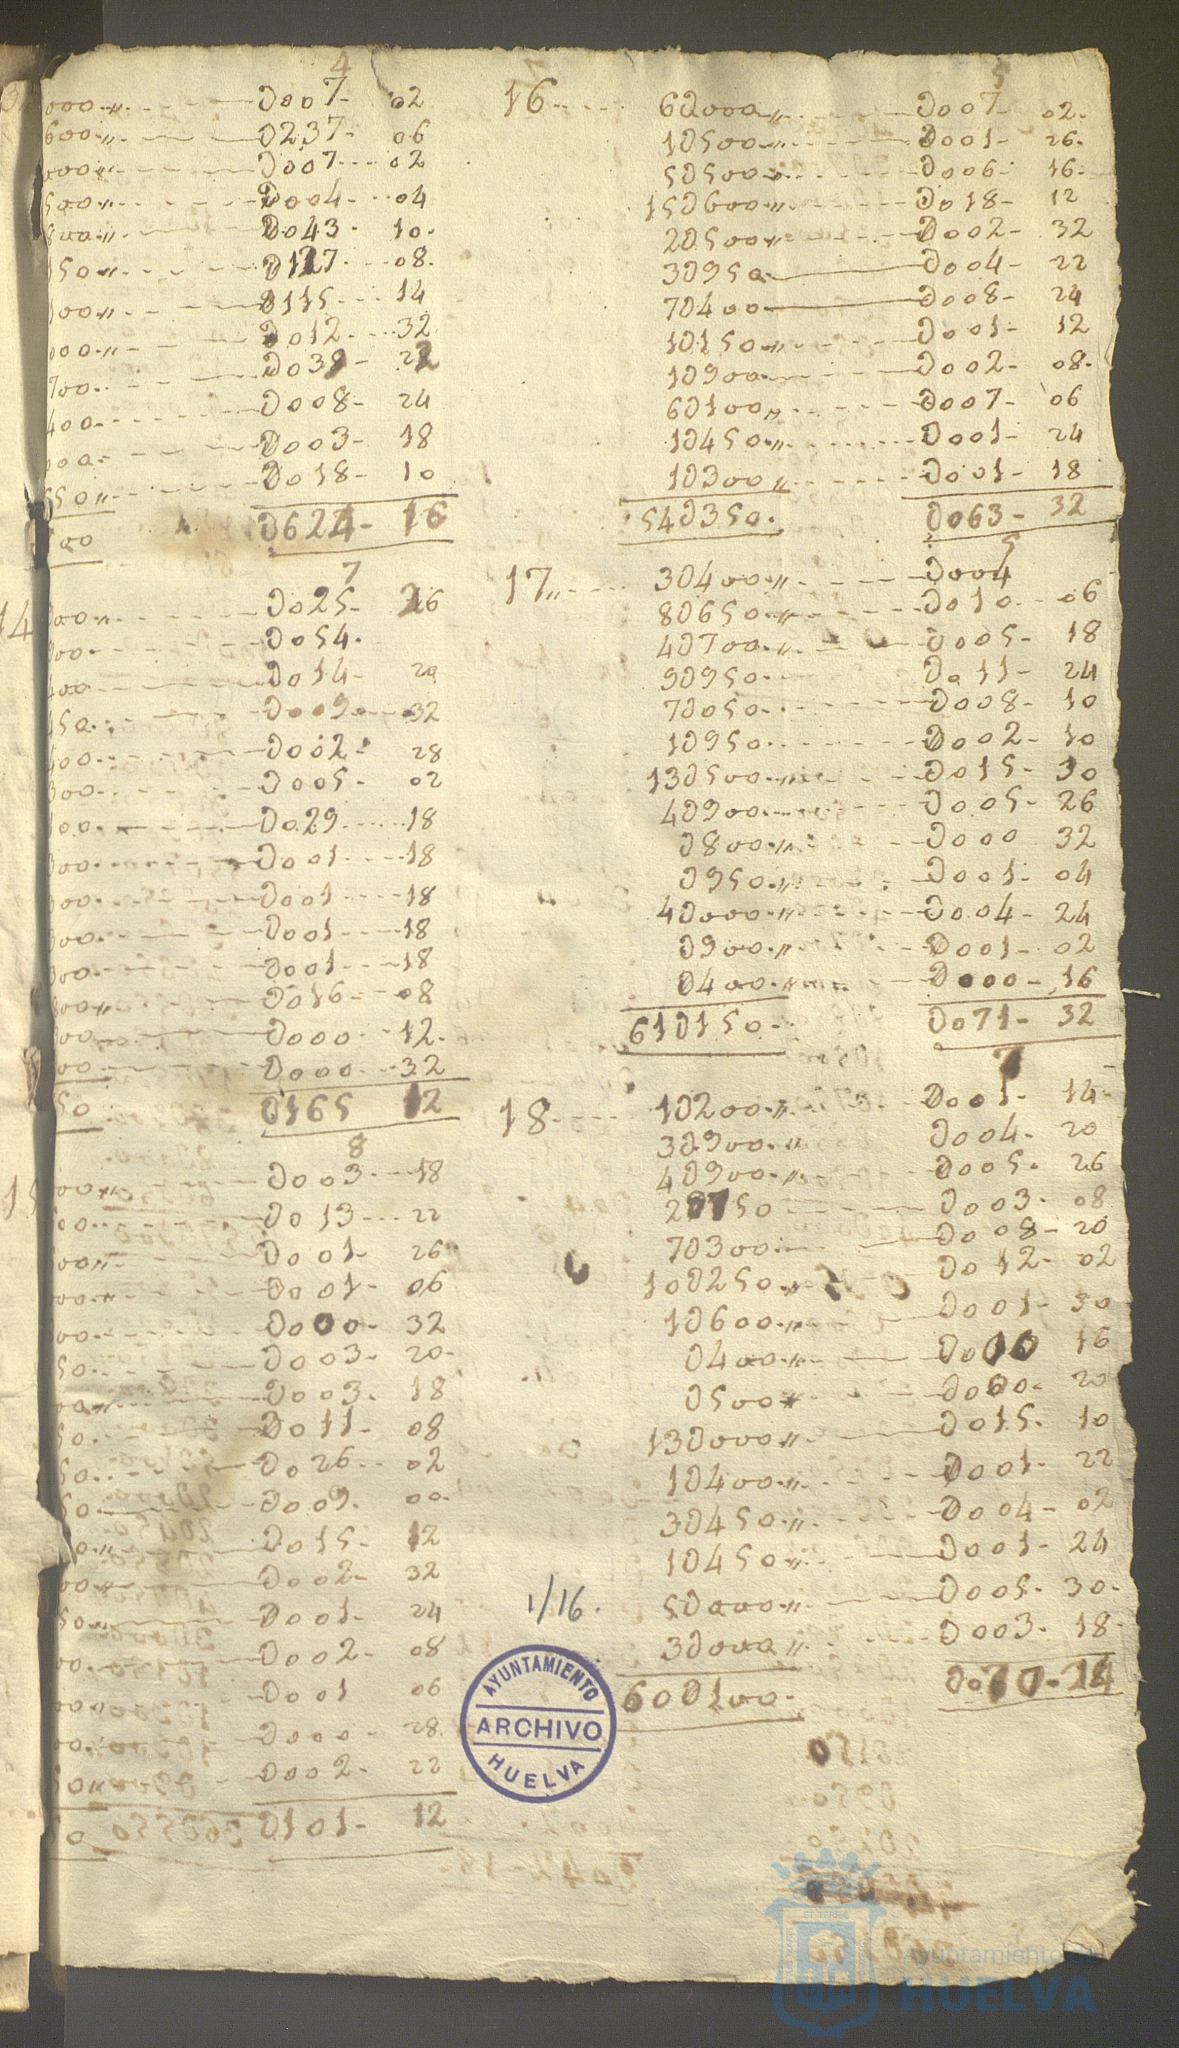 4
000.〃 D007- 02
600〃 D237- 06
000〃 D007 02
500〃 D004- 04
800〃 D043- 10.
150〃 D127 08.
00〃 D115 14
000〃 D012 32
700. D038- 22
400 D008- 24
00. D003- 18
550〃 D018- 10
500 D624- 16
7
14 000〃 D025- 26
00. D054.
400 D014- 20
450. D009 32
400. D002- 28
300 D005- 02
00. D029 18
300 D001 18
300 D001 18
300 D001 18
300 D001 18
300〃 D016 08
00 D000 12.
00 D000 32
50 D165 12
8
15 00〃 D003 18
00 D013 22
00〃 D001- 26
00〃 D001- 06
00 D000- 32
50. D003- 20
00 D003. 18
50. D011- 08
50. D026 02
50 D009. 00.
0〃 D015- 12
00〃 D002- 32
50〃 D001- 24
00. D002- 08
00 D001 06
00. D000 28
50〃 D002- 22
0 D101- 12
5
16 6D000〃 D007- 02.
1D500〃 D001- 26.
5D500 D006 16.
15D600〃 D018- 12
2D500〃 D002- 32
3D950 D004- 22
7D400 D008- 24
1D150〃 D001- 12
1D900 D002- 08.
6D100〃 D007- 06
1D450 D001- 24
1D300〃 D001- 18
54D350. D063- 32
5
17〃 3D400〃 D004
8D650〃 D010 06
4D700〃 D005- 18
9D950. D011- 24
7D050. D008- 10
1D950. D002- 10
13D500〃 D015- 30
4D900. D005- 26
D800〃 D000 32
D950〃 D001- 04
4D000〃 D004- 24
D900〃 D001- 02
D400〃 D000- 16
61D150. D071- 32
7
18 1D200〃 D001- 14
3D900〃 D004- 20
4D900〃 D005. 26
2D750 D003. 08
7D300 D008- 20
10D250〃 D012- 02
1D600〃 D001- 30
D400〃 D000 16
D500〃 D000 20
13D000〃 D015. 10
1D400〃 D001- 22
3D450〃 D004- 02
1D450〃 D001- 24
5D000〃 D005- 30.
3D000〃 D003- 18
60D100. D070-24
1/16.
AYUNTAMIENTO
ARCHIVO
HUELVA
Ayuntamiento de
HUELVA